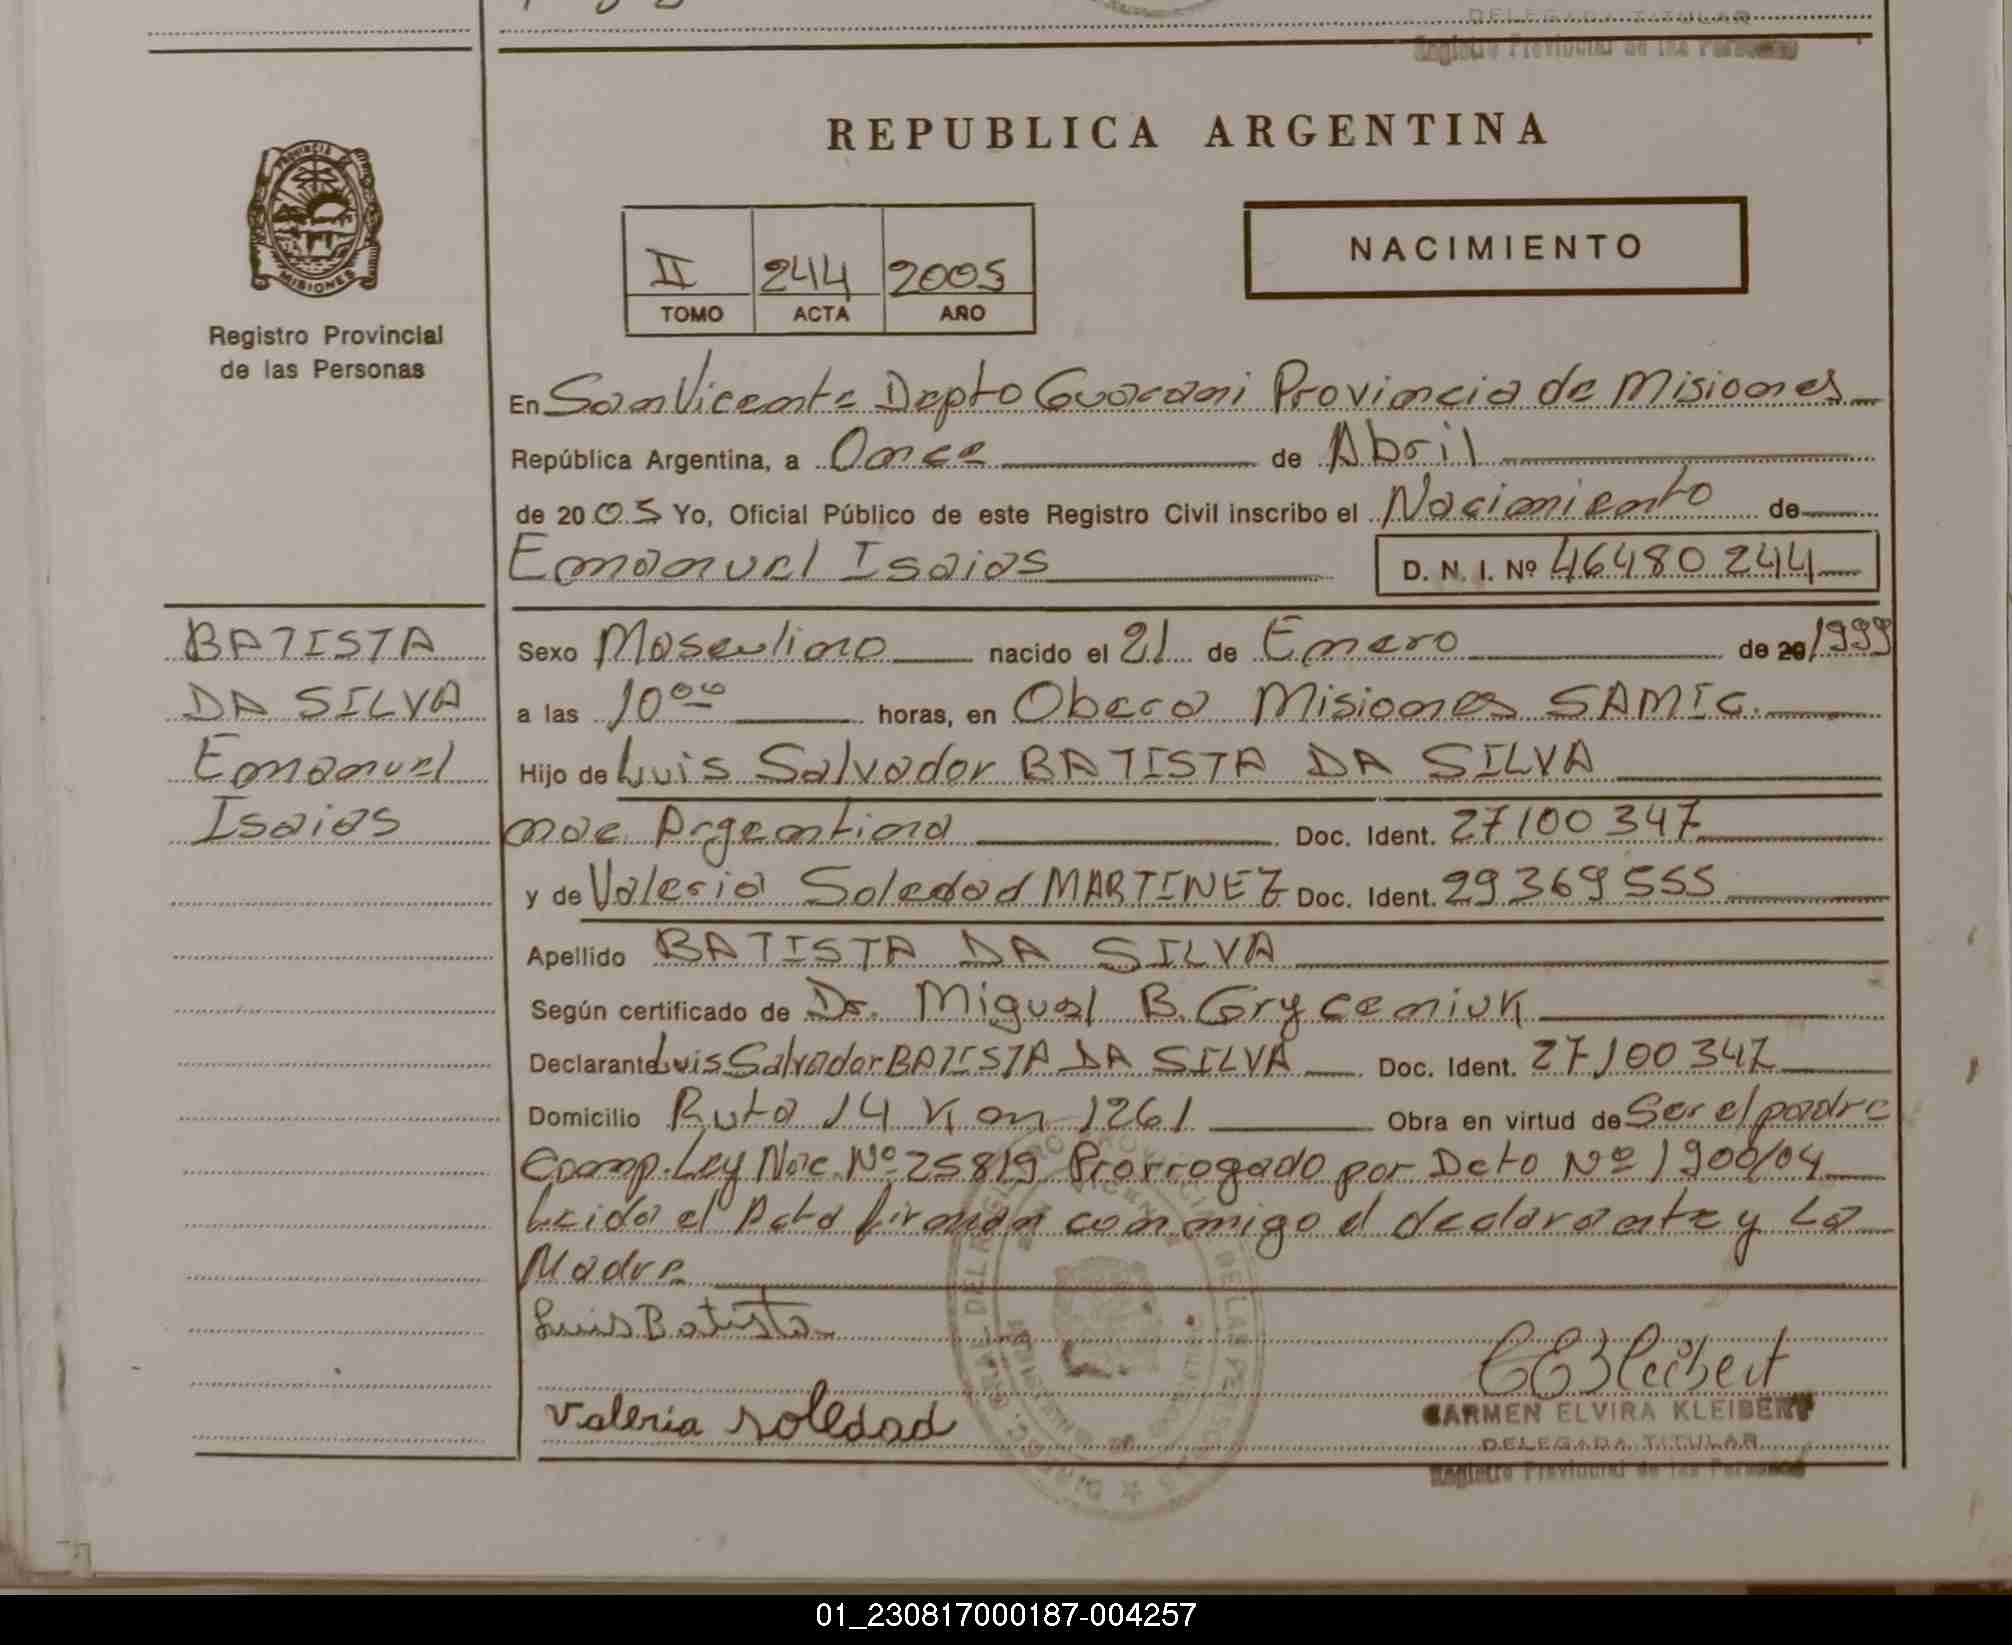 DELEGADA TITULAR
Registro Provincial de las Personas
PROVINCIA DE
MISIONES
Registro Provincial
de las Personas
REPUBLICA ARGENTINA
II 244 2005
TOMO ACTA AÑO
NACIMIENTO
En San Vicente Depto Guarani Provincia de Misiones
República Argentina, a Once de Abril
de 2005 Yo, Oficial Público de este Registro Civil inscribo el Nacimiento de
Emanuel Isaias D. N. I. Nº 46480244
BATISTA
DA SILVA
Emanuel
Isaias
Sexo Masculino nacido el 21 de Enero de 20 1999
a las 10 00 horas, en Obera Misiones SAMIC.
Hijo de Luis Salvador BATISTA DA SILVA
nac. Argentina Doc. Ident. 27100347
y de Valeria Soledad MARTINEZ Doc. Ident. 29369555
Apellido BATISTA DA SILVA
Según certificado de Dr. Miguel B. Gryceniuk
Declarante Luis Salvador BATISTA DA SILVA Doc. Ident. 27100347
Domicilio Ruta 14 Km 1261 Obra en virtud de Ser el padre
Comp. Ley Nac. Nº 25819 Prorrogado por Dcto Nº 1900/04
Leida el Acta firman conmigo el declarante y La
Madre
Luis Batista
Valeria soledad
CEKleibert
CARMEN ELVIRA KLEIBERT
DELEGADA TITULAR
Registro Provincial de las Personas
01_230817000187-004257